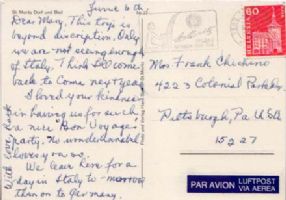 St. Moritz Dorf und Bad
June 16th
Dear Mary, This trip is
beyond discription. Only
you are not seeing enough
of Italy. I think I'll come
back to come next year.
I loved your kindness
in having us for such
a nice Bon Voyage
party. No
loves you so.
We leave here for a
day in Italy to
then on to Germany.
With love
HELVETIA
80
Mrs Frank Chichano
4223 Colonial Park Dr.
Pittsburgh, Pa USA
15227
PAR AVION
LUFTPOST
VIA AEREA